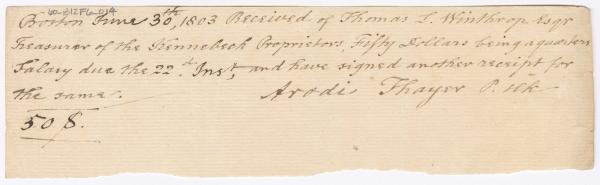 60-812F6-014
Boston June 30th, 1803 Received of Thomas L. Winthrop Esqr
Treasurer of the Kennebeck Proprietors, Fifty Dollars being a quarters
Salary due the 22d Inst, and have signed another receipt for
the same.
Arodi Thayer P. Clk
50 $.